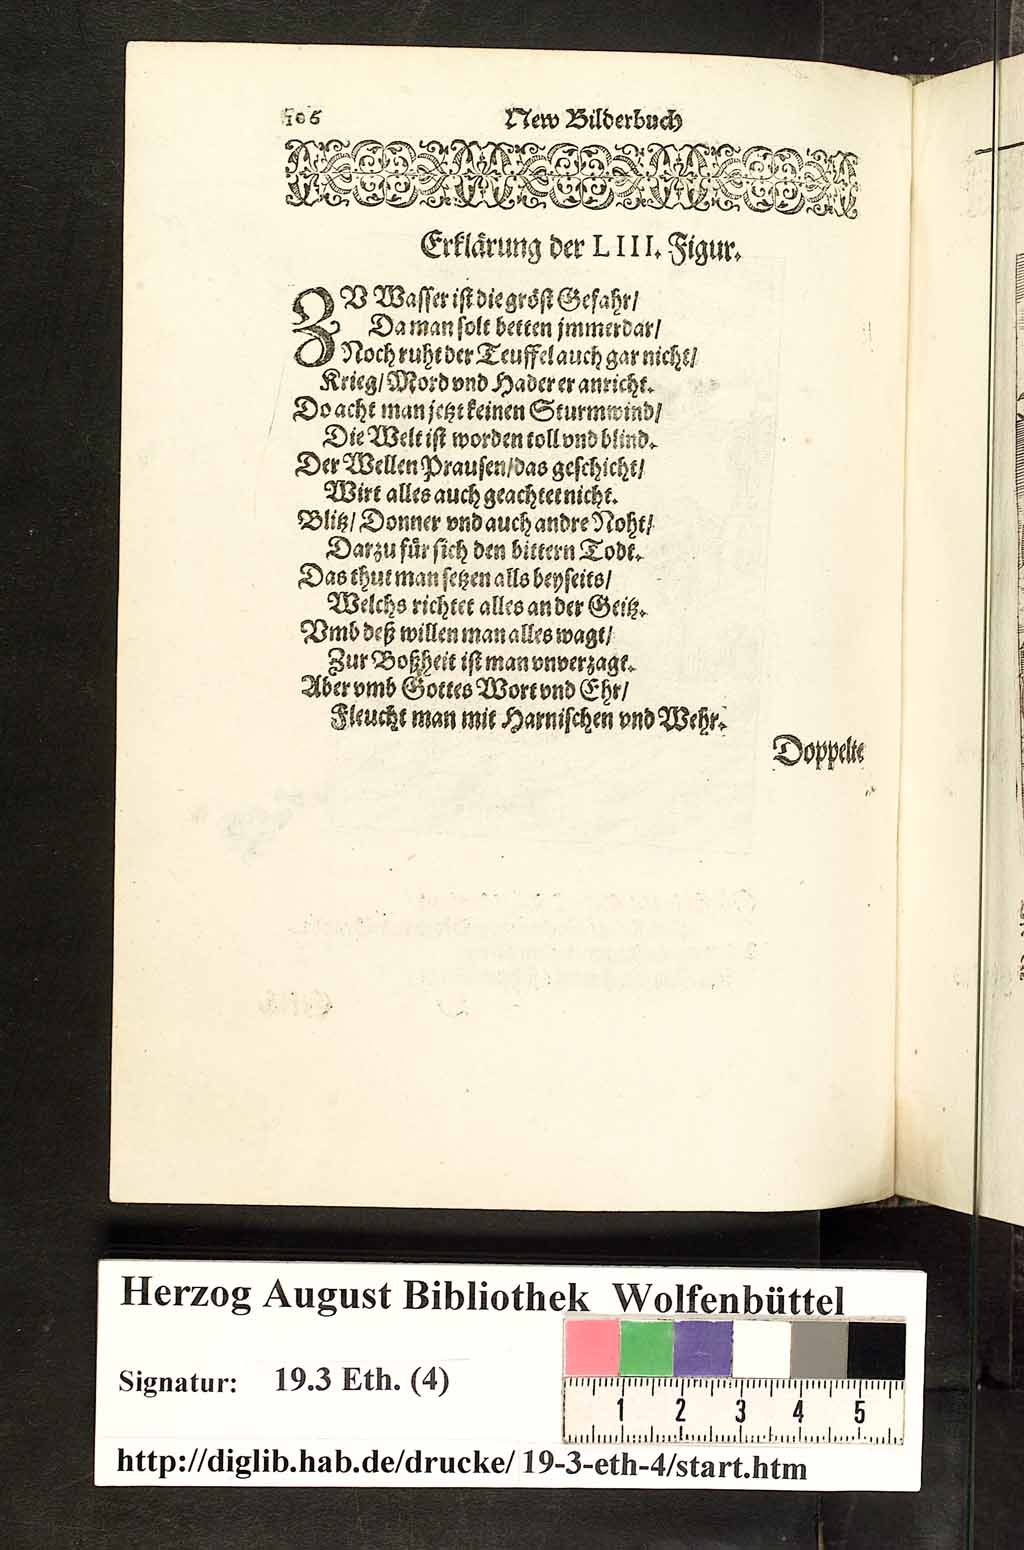 106 New Bilderbuch
Erklärung der LIII. Figur.
ZV Wasser ist die gröst Gefahr/
Da man solt betten jmmerdar/
Noch ruht der Teuffel auch gar nicht/
Krieg/ Mord vnd Hader er anricht.
Do acht man jetzt keinen Sturmwind/
Die Welt ist worden toll vnd blind.
Der Wellen Prausen/das geschicht/
Wirt alles auch geachtet nicht.
Blitz/ Donner vnd auch andre Noht/
Darzu für sich den bittern Todt.
Das thut man setzen alls beyseits/
Welchs richtet alles an der Geitz.
Vmb deß willen man alles wagt/
Zur Boßheit ist man vnverzagt.
Aber vmb Gottes Wort vnd Ehr/
Fleucht man mit Harnischen vnd Wehr.
Doppelte
Herzog August Bibliothek Wolfenbüttel
Signatur: 19.3 Eth. (4)
1 2 3 4 5
http://diglib.hab.de/drucke/ 19-3-eth-4/start.htm